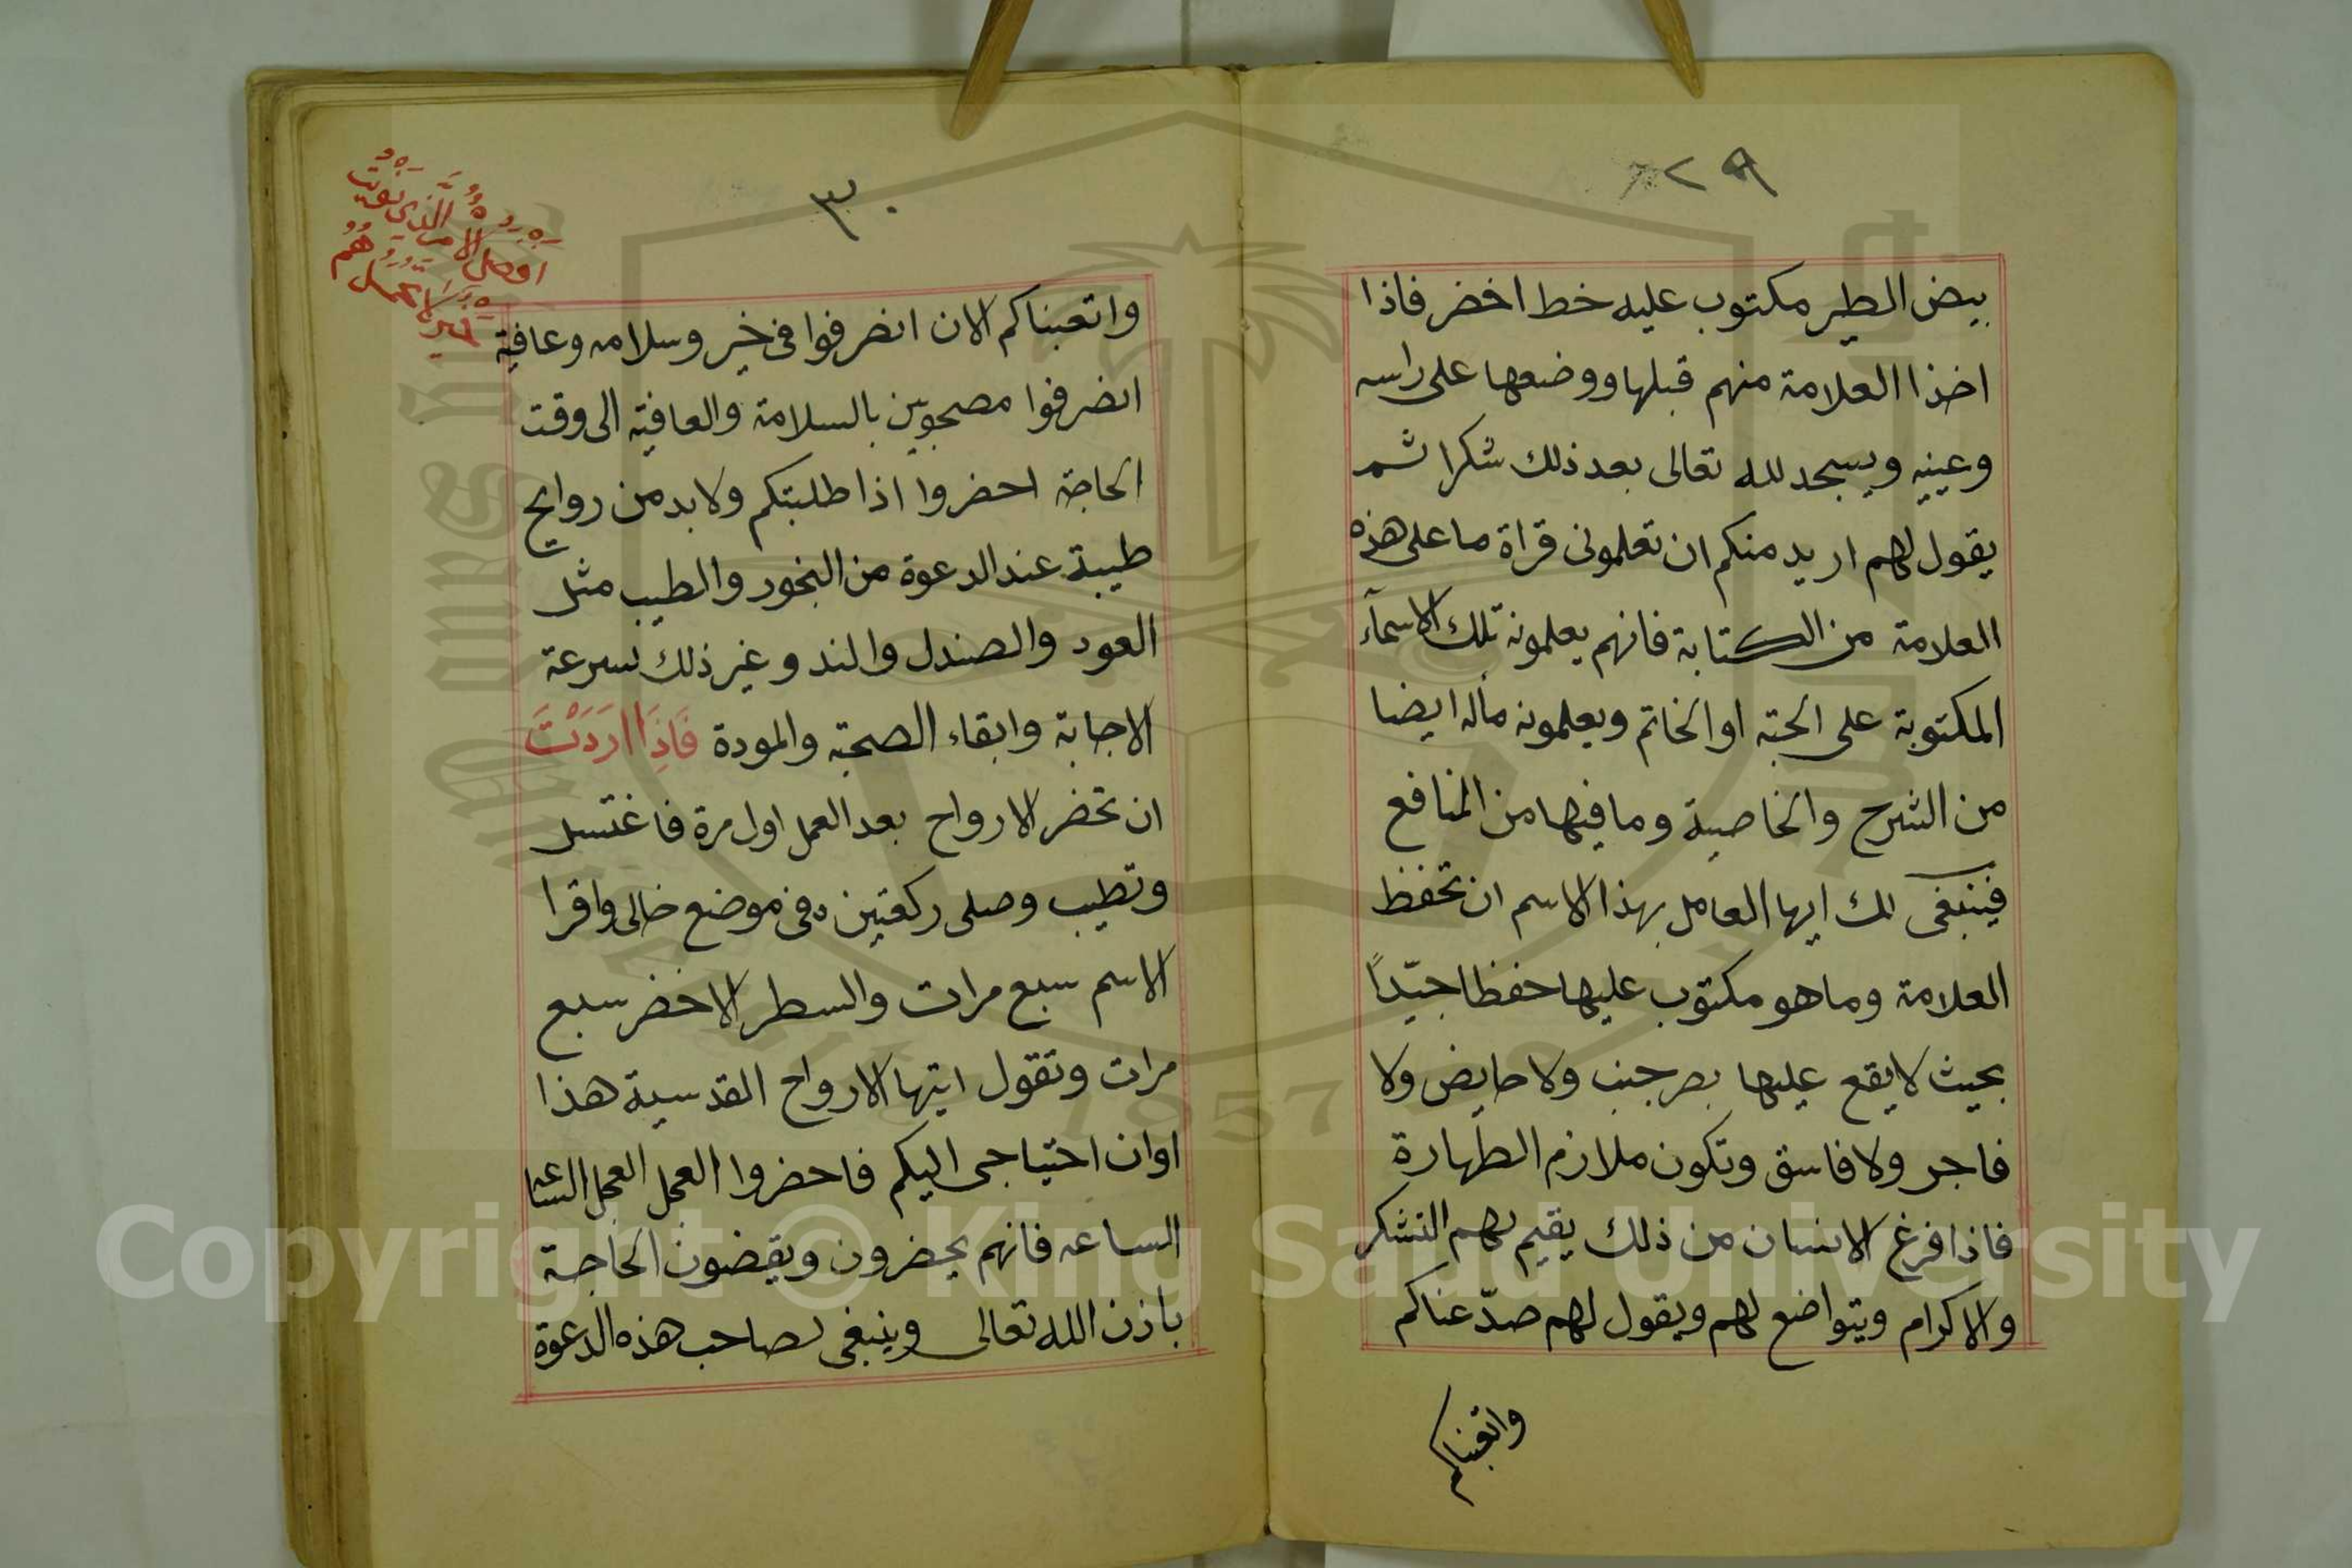 ٢٩
بيض الطير مكتوب عليه خط اخضر فاذا
اخذ العلامة منهم قبلها ووضعها على راسه
وعينيه ويسجد لله تعالى بعد ذلك شكرا ثم
يقول لهم اريد منكم ان تعلمونى قراة ما على هذه
العلامة من الكتابة فانهم يعلمونه تلك الاسمآء
المكتوبة على الحبة او الخاتم ويعلمونه ماله ايضا
من الشرح والخاصية وما فيها من المنافع
فينبغى لك ايها العامل بهذا الاسم ان تحفظ
العلامة وما هو مكتوب عليها حفظا جيّداً
بحيث لا يقع عليها بصر جنب ولا حايض ولا
فاجر ولا فاسق وتكون ملازم الطهارة
فاذا فرغ الانسان من ذلك يقيم لهم التشكر
والاكرام ويتواضع لهم ويقول لهم صدّعناكم
واتعبناكم
٣٠
واتعبناكم الان انصرفوا فى خير وسلامه وعافية
انصرفوا مصحوبين بالسلامة والعافية الى وقت
الحاجة احضروا اذا طلبتكم ولا بد من روايح
طيبة عند الدعوة من البخور والطيب مثل
العود والصندل والند وغير ذلك لسرعة
الاجابة وابقاء الصحبة والمودة فَاِذَا اَرَدَتْ
ان تحضر الارواح بعد العمل اول مرة فاغتسل
وتطيب وصلى ركعتين فى موضع خالى واقرا
الاسم سبع مرات والسطر الاخضر سبع
مرات وتقول ايتها الارواح القدسية هذا
اوان احتياجى اليكم فاحضروا العجل العجل الساعه
الساعه فانهم يحضرون ويقضون الحاجة
باذن الله تعالى وينبغى لصاحب هذه الدعوة
Copyright © King Saud University
1957